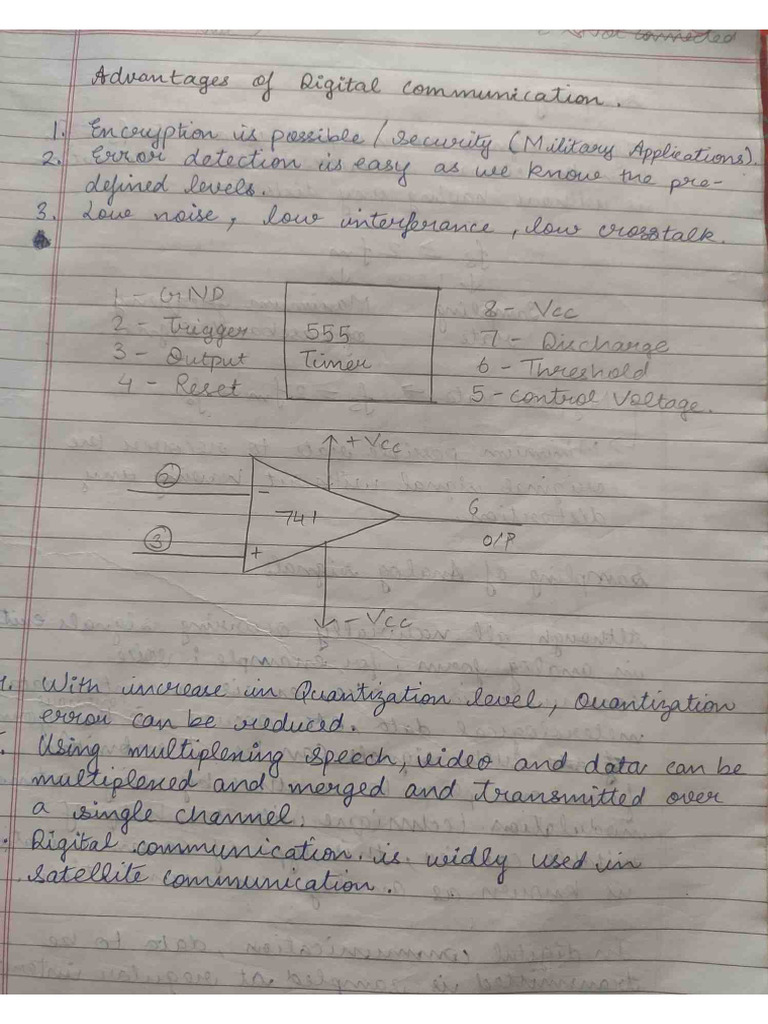 Not connected
Advantages of Digital communication.
1. Encryption is possible / security (Military Applications).
2. Error detection is easy as we know the pre-
defined levels.
3. Low noise, low interferance, low crosstalk.
1 - GND
8 - Vcc
2 - Trigger
555
7 - Discharge
3 - Output
Timer
6 - Threshold
4 - Reset
5 - control Voltage.
+ Vcc
2
-
741
6
3
+
O/P
- Vcc
4. With increase in Quantization level, Quantization
error can be reduced.
Using multiplening speech, video and data can be
multiplexed and merged and transmitted over
a single channel.
Digital communication is widly used in
satellite communication.